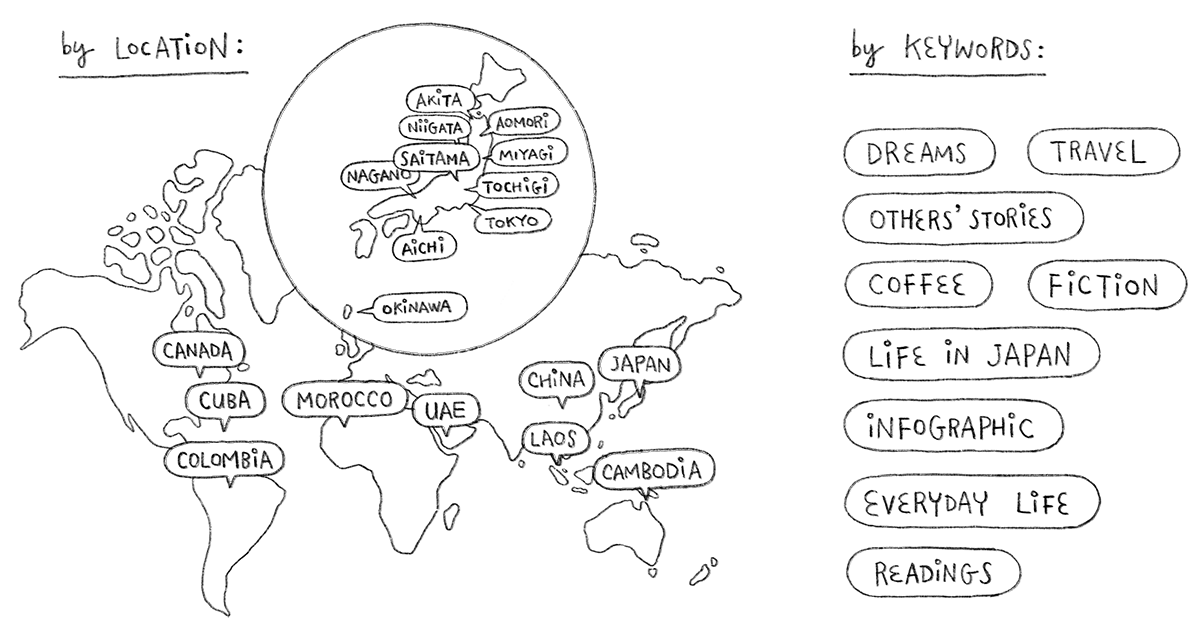 by LOCATiON:
AKiTA
NiiGATA
AOMORi
SAiTAMA
MiYAGi
NAGANO
TOCHiGi
TOKYO
AiCHi
OKiNAWA
CANADA
CUBA
COLOMBiA
MOROCCO
UAE
CHiNA
JAPAN
LAOS
CAMBODiA
by KEYWORDS:
DREAMS
TRAVEL
OTHERS' STORiES
COFFEE
FiCTiON
LiFE iN JAPAN
iNFOGRAPHiC
EVERYDAY LiFE
READiNGS